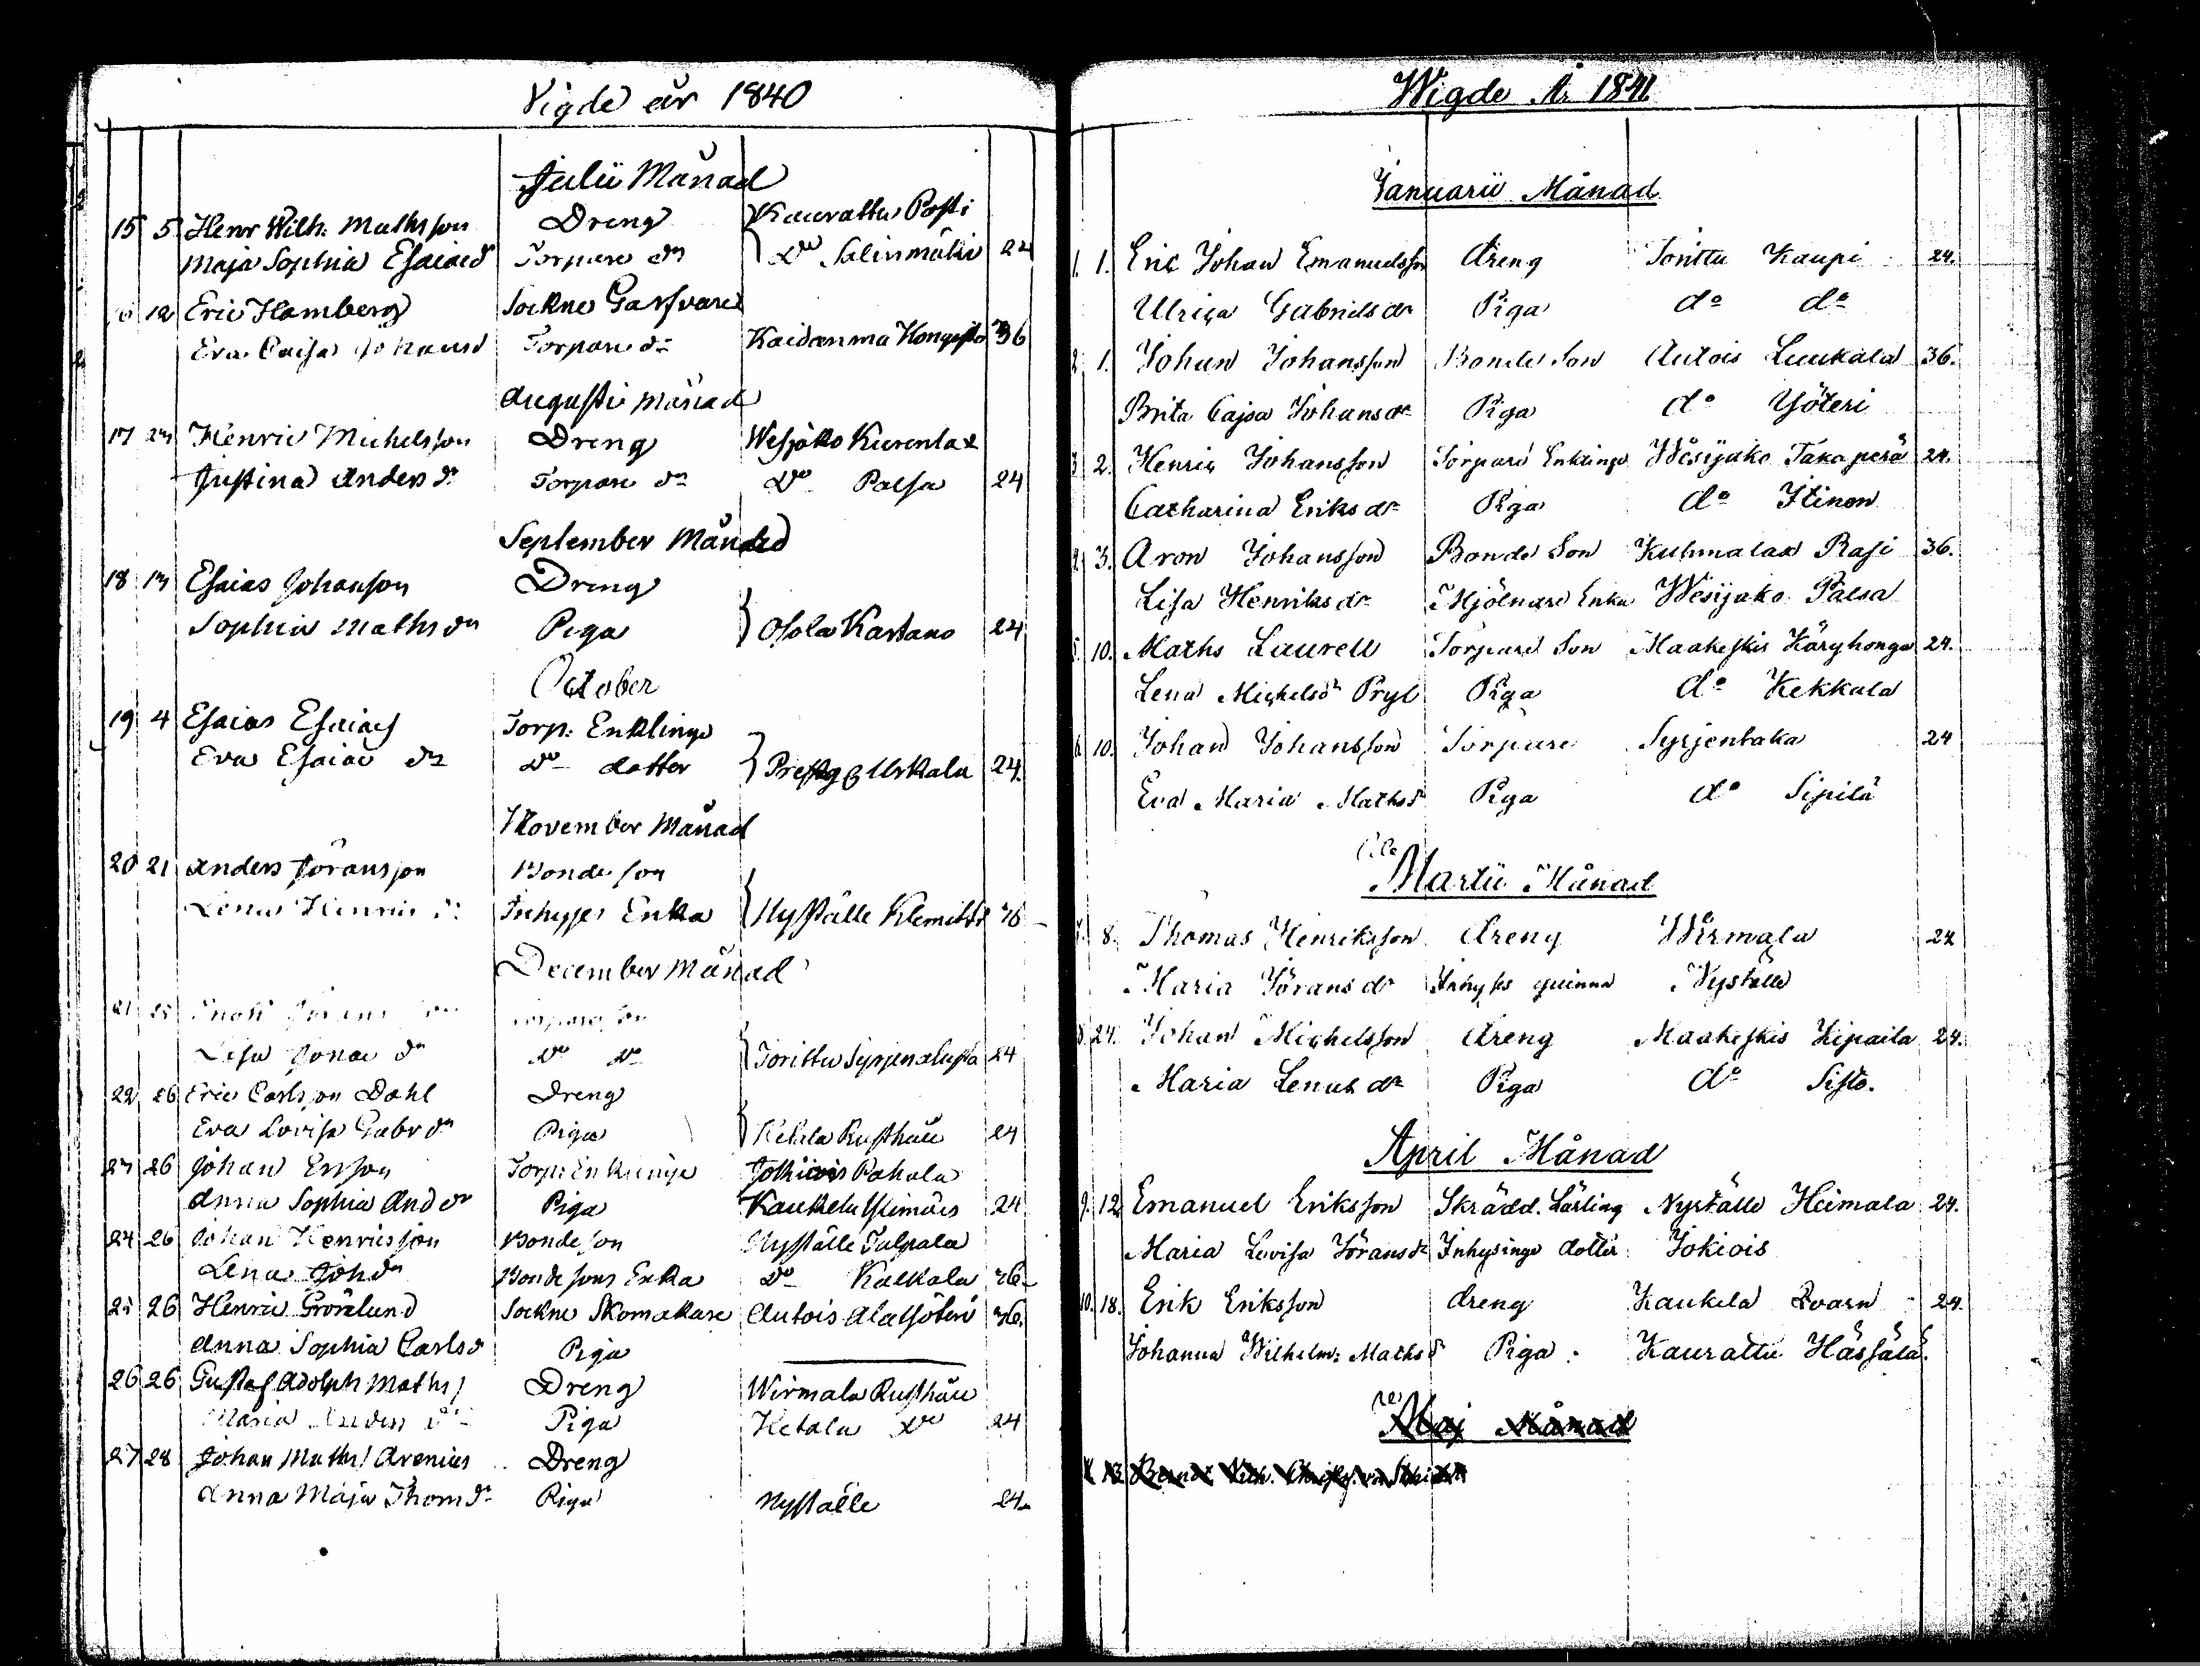 Vigde år 1840
Julii Månad
15 5 Henr Wilh: Mathsson Dreng Kaurattu Posti
Maja Sophia Esaiaed Torpare dr Do Salinmäki 24
12 Eric Hamberg Sockne Garfvare
Eva Caisa Johansd Torpare dr Kaidanma 36
Augusti Månad
17 Henric Michelsson Dreng Wesjäko Kurenlax
Justina Anders dr Torpare dr Do Paesa 24
September Månad
18 13 Esaias Johansson Dreng
Sophia Maths dr Piga Ojola Kartano 24
October
19 4 Esaias Esaiass Torp: Enklinge
Eva Esaiae dr Do dotter Uskala 24
November Månad
20 21 Anders Jöransson Bonde son
Lena Henric dr Inhyses Enka Nyställe
December Månad
21
Lisa Jonae dr Do Do 24
22 26 Eric Carlsson Dahl Dreng
Eva Lovisa Gabr dr Piga Ketala Rusthåll 24
26 Johan Ersson Torp: Enklinge Jokiois Pahala
Anna Sophia And dr Piga Kaukela 24
24 26 Johan Henricsson Bonde son Nyställe Talpala
Lena Joh dr Bonde sons Enka Do Kaekala 36
26 Henric Grönlund Sockne Skomakare Autois 36
Anna Sophia Carlsd Piga
26 26 Gustaf Adolph Maths Dreng Wirmala Rusthåll
Maria Anders dr Piga Ketala Do 24
27 28 Johan Maths Arenius Dreng
Anna Maja Thom dr Piga Nyställe 24
Wigde År 1841.
Januarii Månad
1. 1. Eric Johan Emanuelsson dreng Torittu Kaupi 24.
Ulrica Gabriels dr Piga do do
2 1. Johan Johansson Bonde Son Autois Luukala 36.
Brita Cajsa Johans dr Piga do Yöteri
3 2. Henric Johansson Torpare Enklinge Wesijako Takaperä 24.
Catharina Eriks dr Piga do Itinon
4 3. Aron Johansson Bonde Son Kuhmalax Rasi 36.
Lisa Henriks dr Mjölnare Enka Wesijako Paesa
5. 10. Maths Laurell Torpare Son Maakeskis Käryhonga 24.
Lena Michelsdr Pryl Piga do Kekkala
6 10. Johan Johansson Torpare Syrjentaka 24
Eva Maria Mathsdr Piga do Sipilä
Martii Månad
7. 8. Thomas Henriksson dreng Wirmala 24
Maria Jörans dr Inhyses qvinna Nyställe
8. 24. Johan Michelsson dreng Maakeskis 24.
Maria Lenus dr Piga do Sisto.
April Månad
9. 12. Emanuel Eriksson Skrädd. Lärling Nyställe Heimala 24.
Maria Lovisa Jörans dr Inhysinge dotter Jokiois
10. 18. Erik Eriksson dreng Kaukela Qvarn 24.
Johanna Wilhelm: Maths dr Piga Kaurattu Hässälä.
Maj Månad